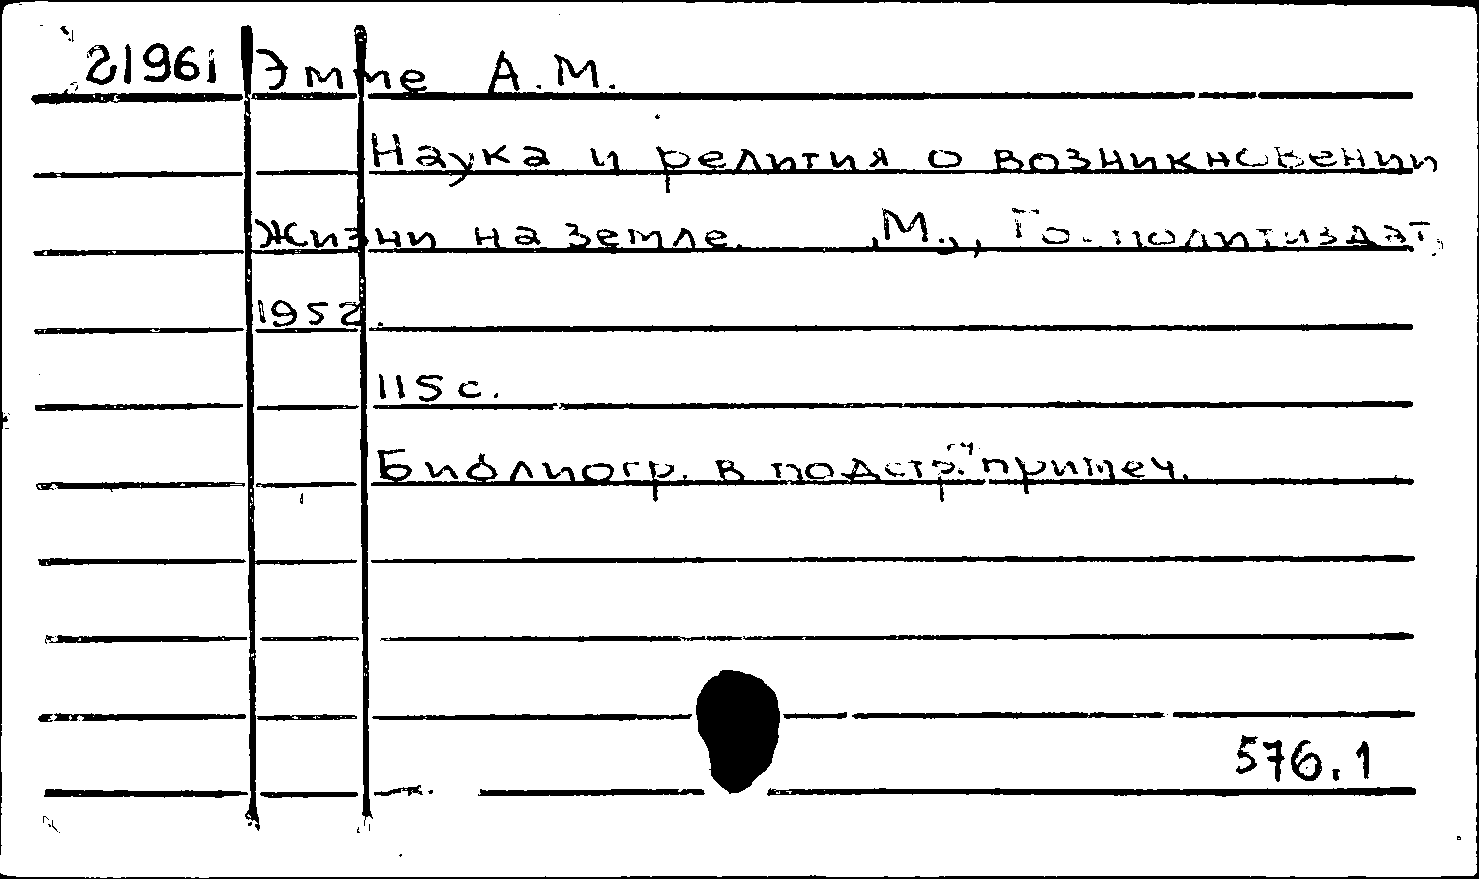 21961 Эмме А.М.
Наука и религия о возникновении
жизни на земле. М., Госполитиздат,
1952.
115 с.
Библиогр. в подстр. примеч.
576.1